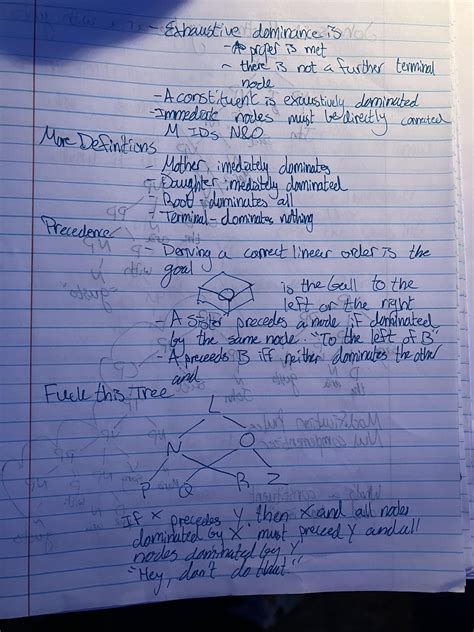 - Exhaustive dominance is
- As proper is met
- there is not a further terminal
node
- A constituent is exhaustively dominated
- Immediate nodes must be directly connected
M IDs N&O
More Definitions
- Mother, imediately dominates
- Daughter, imediately dominated
- Root, dominates all
- Terminal - dominates nothing
Precedence
- Deriving a correct linear order is the
goal
is the ball to the
left or the right
- A sister precedes a node if dominated
by the same node. "To the left of B"
- A preceeds B iff neither dominates the other
and
Fuck this Tree
L
N O
P Q R Z
If X precedes Y, then X and all nodes
dominated by X must preceed Y and all
nodes dominated by Y
"Hey, don't do that!"